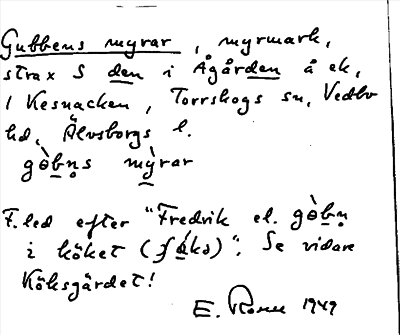 Gubbens myrar, myrmark,
strax S den i Ågården å ek.
1 Kesnacken, Torrskogs sn, Vedbo
hd, Älvsborgs l.
gòbn̥s mỳrar
F.led efter "Fredrik el. gòbn̥
i köket (
)". Se vidare
Köksgärdet!
E. Rosell 1949